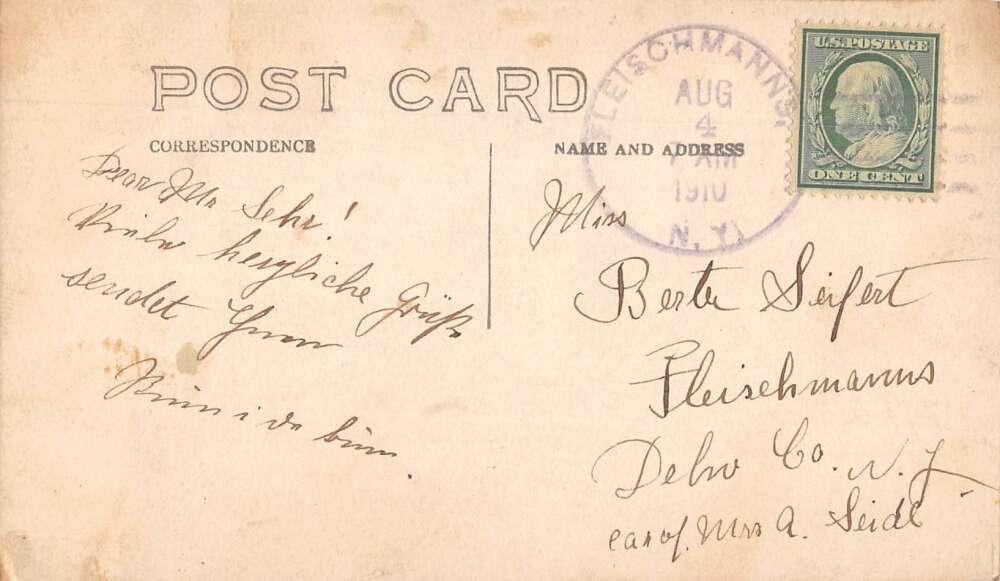 POST CARD
CORRESPONDENCE
NAME AND ADDRESS
FLEISCHMANNS,
AUG
4
7 AM
1910
N.Y.
U.S. POSTAGE
ONE CENT
Dear Mr Sehr!
Viele herzliche Grüße
sendet Ihnen
i
Miss
Berta Seifert
Fleischmanns
Delw Co. N. Y.
car of. Mrs A. Seidl